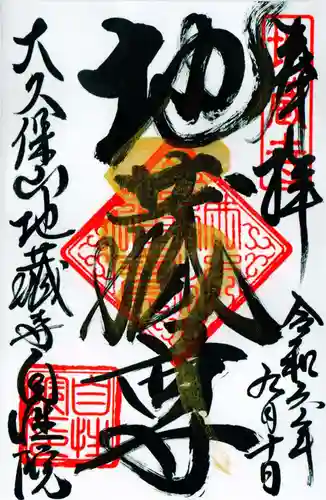 奉拝
令和六年
九月十日
地蔵尊
大久保山地藏寺自性院